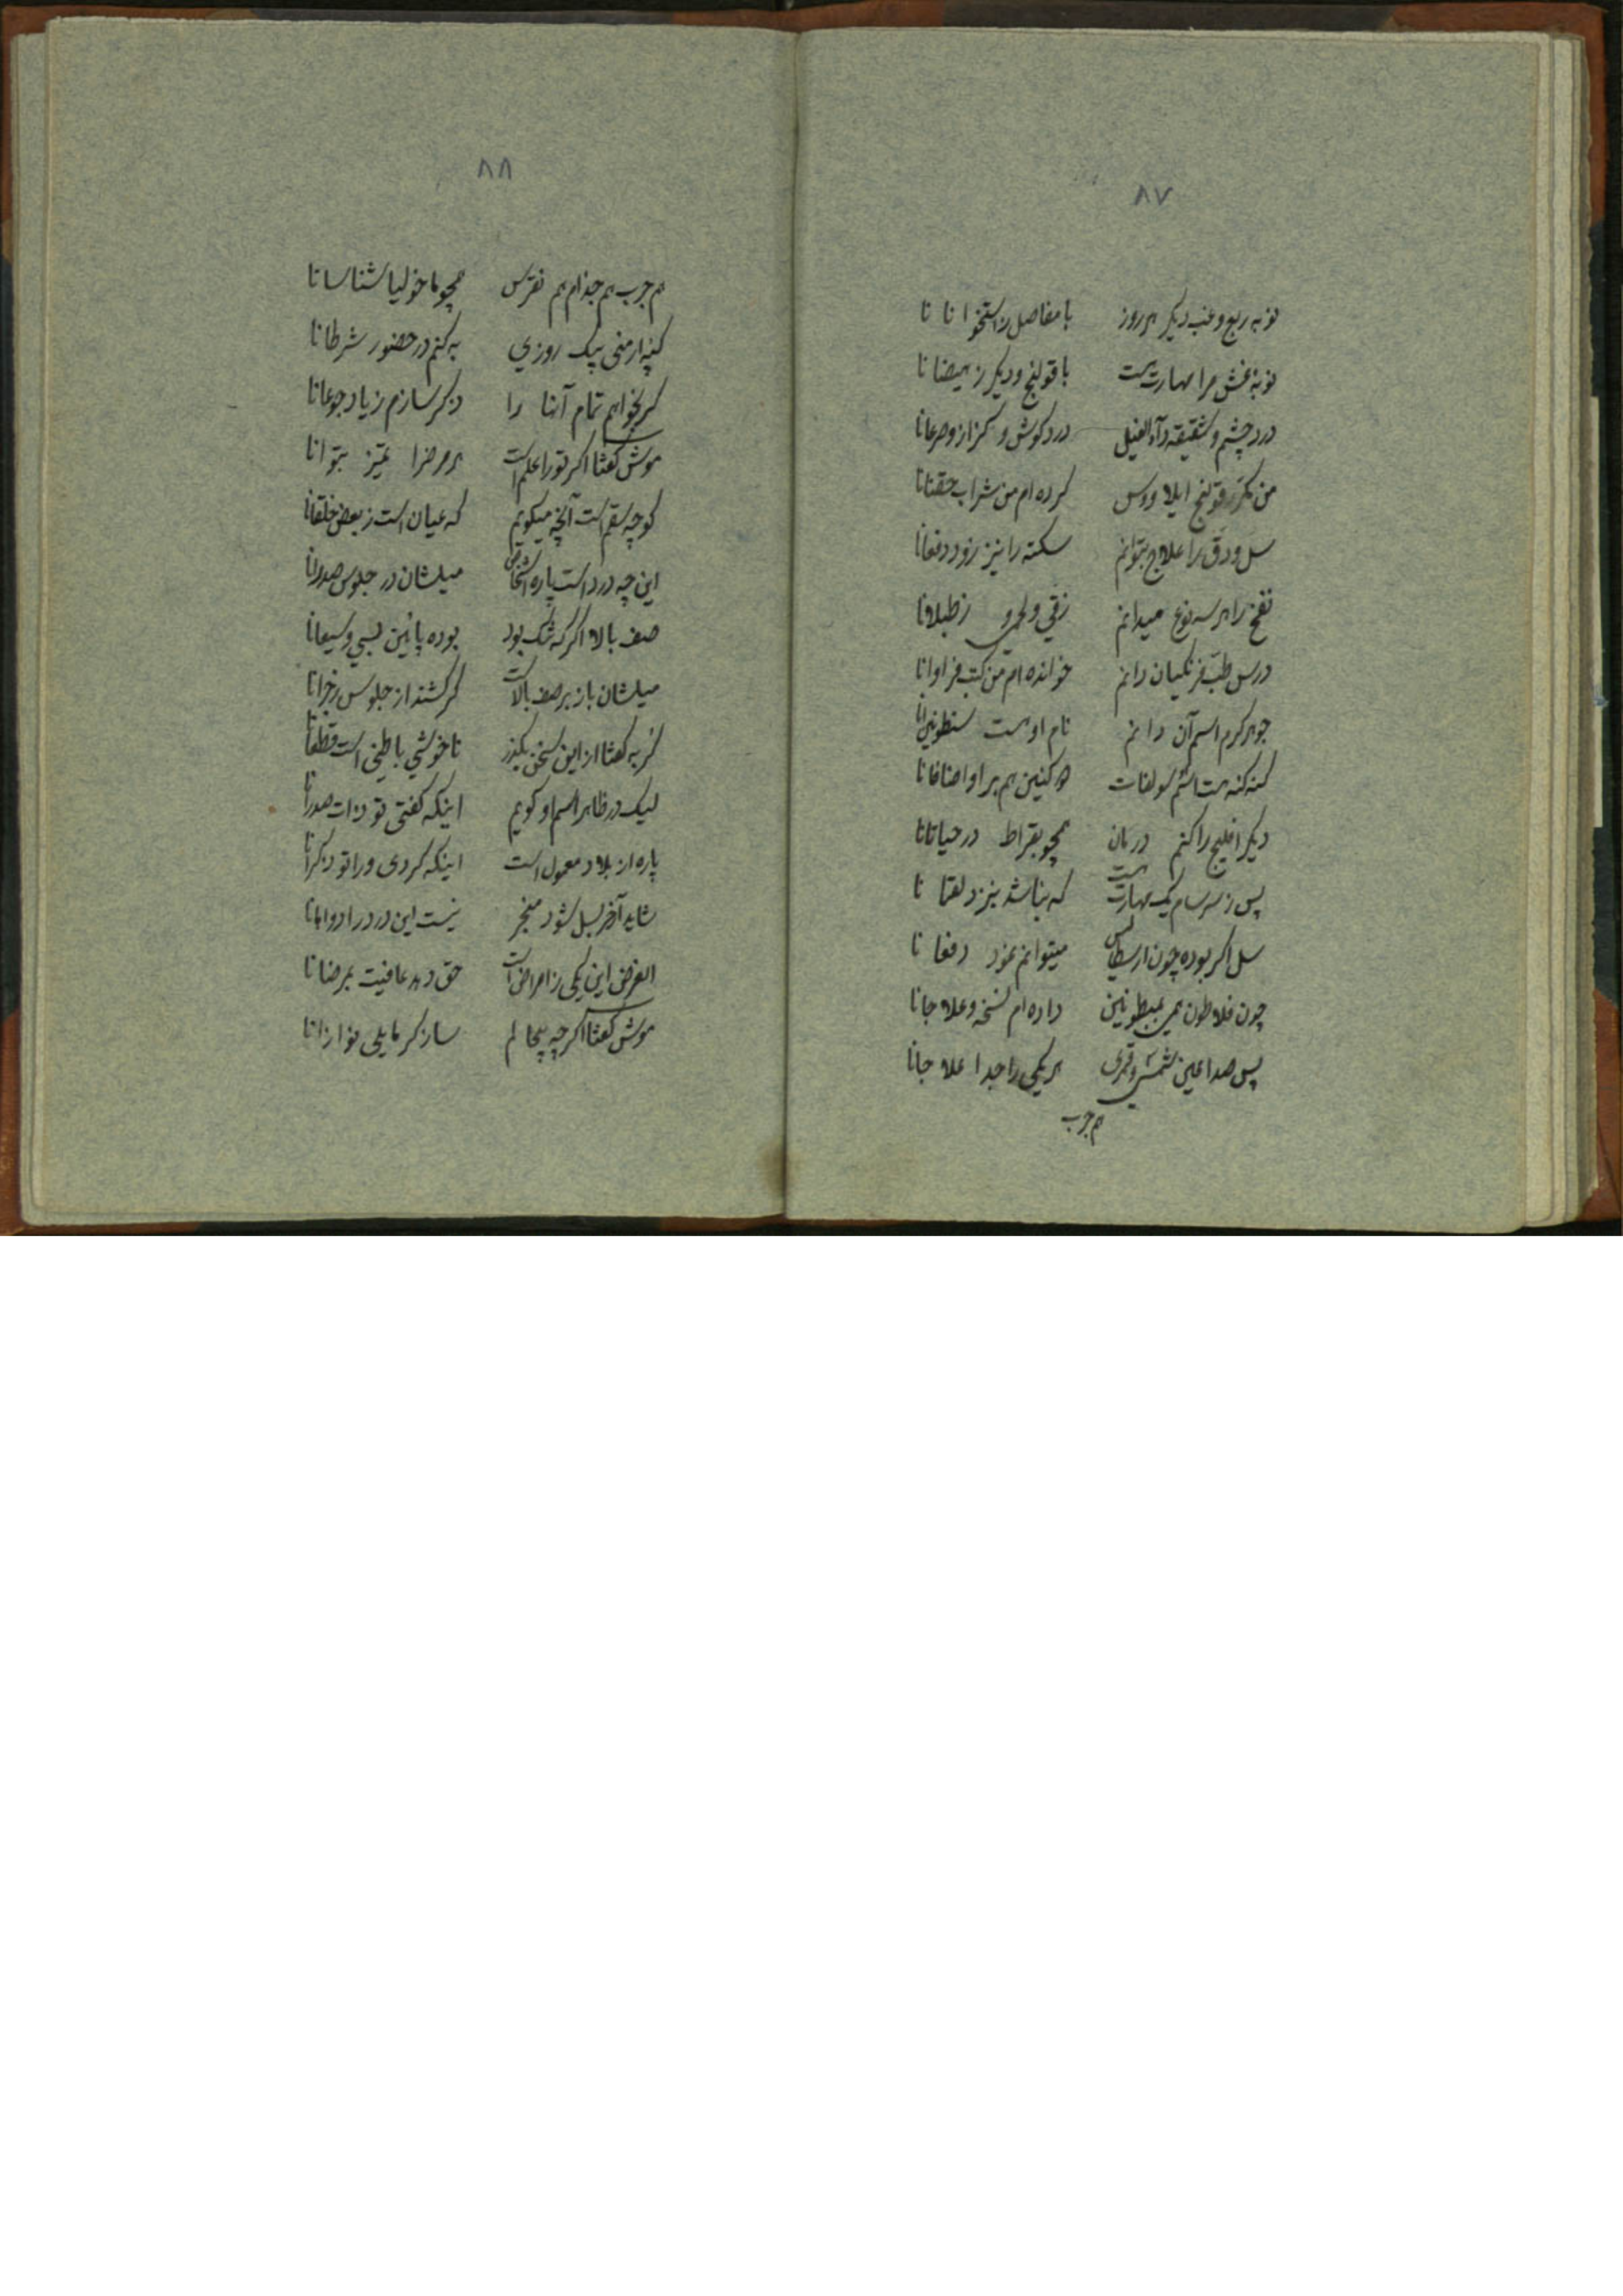 ۸۷
نوبه ربع و غب دیگر هر روز با مفاصل ز استخوانانا
نوبه غش مرا مهارت هست با قولنج و دیگر ز هیضانا
درد چشم و شقیقه داء الفیل درد گوش و کزاز و صرعانا
من مکرر قولنج ایلاووس کرده ام من شراب حقنانا
سل و دق را علاج بتوانم سکته را نیز زود دفعانا
نفخ را هر سه نوع میدانم زقی و لحمی و ز طبلانا
درس طب فرنگیان دانم خوانده ام من کتب فراوانا
جوهر کرم اسم آن دانم نام او هست سنطونینانا
کنه کنه هست اسم سولفات هم براو اضافانا
دیگر افلیج را کنم درمان همچو بقراط در حیاتانا
پس ز سرسام یک مهارت هست که نباشد بنزد لقنانا
سل اگر بوده چون ارسطالیس میتوانم نمود دفعانا
چون فلاطون همی بمبطونین داده ام نسخه و علاجانا
پس صداعین شمسی و قمری هر یکی را جدا علاجانا
هم جرب
۸۸
هم جرب هم جذام هم نقرس همچو ماخولیا شناسانا
کپه ارمنی بیک روزی به کنم در حضور شرطانا
گر بخواهم تمام آنها را ذکر سازم زیاد جوعانا
موش گفتا اگر تو را علم است هر مرض را تمیز بتوانا
گو چه سقم است آنچه میگویم که عیان است ز بعض خلقانا
این چه درد است پاره اشخاص میلشان در جلوس صدرانا
صف بالا اگر که تنگ بود بوده پائین بسی وسیعانا
میلشان باز بر صف بالاست گر کشند از جلوس زجرانا
گربه گفتا از این سخن بگذر ناخوشی باطنی است قطعانا
لیک در ظاهر اسم او گویم اینکه گفتی تو ذات صدرانا
پاره از بلاد معمول است اینکه کردی ورا تو ذکرانا
شاید آخر بسل شود منجر نیست این درد را دواهانا
الغرض این یکی ز امراض است حق دهد عافیت بمرضانا
موش گفتا اگرچه بیحالم ساز گر مایلی نوازانا